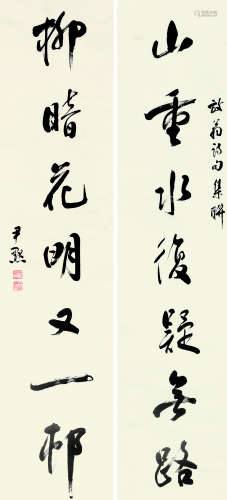 山重水復疑無路
放翁詩句集聯
柳暗花明又一邨
尹默